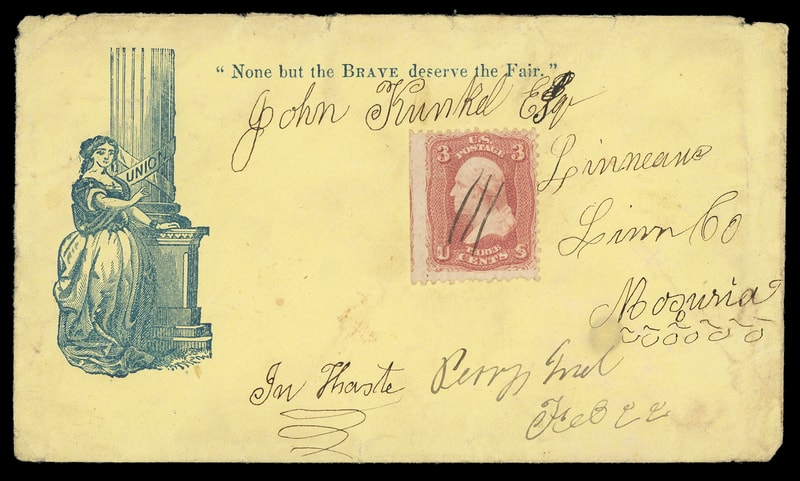 “ None but the BRAVE deserve the Fair.”
John Kunkel Esqr
UNION
3 U.S. POSTAGE 3
Linneaus
THREE
U CENTS S
Linn Co
Mosuria
In Haste
Perry, Ind
Feb 22